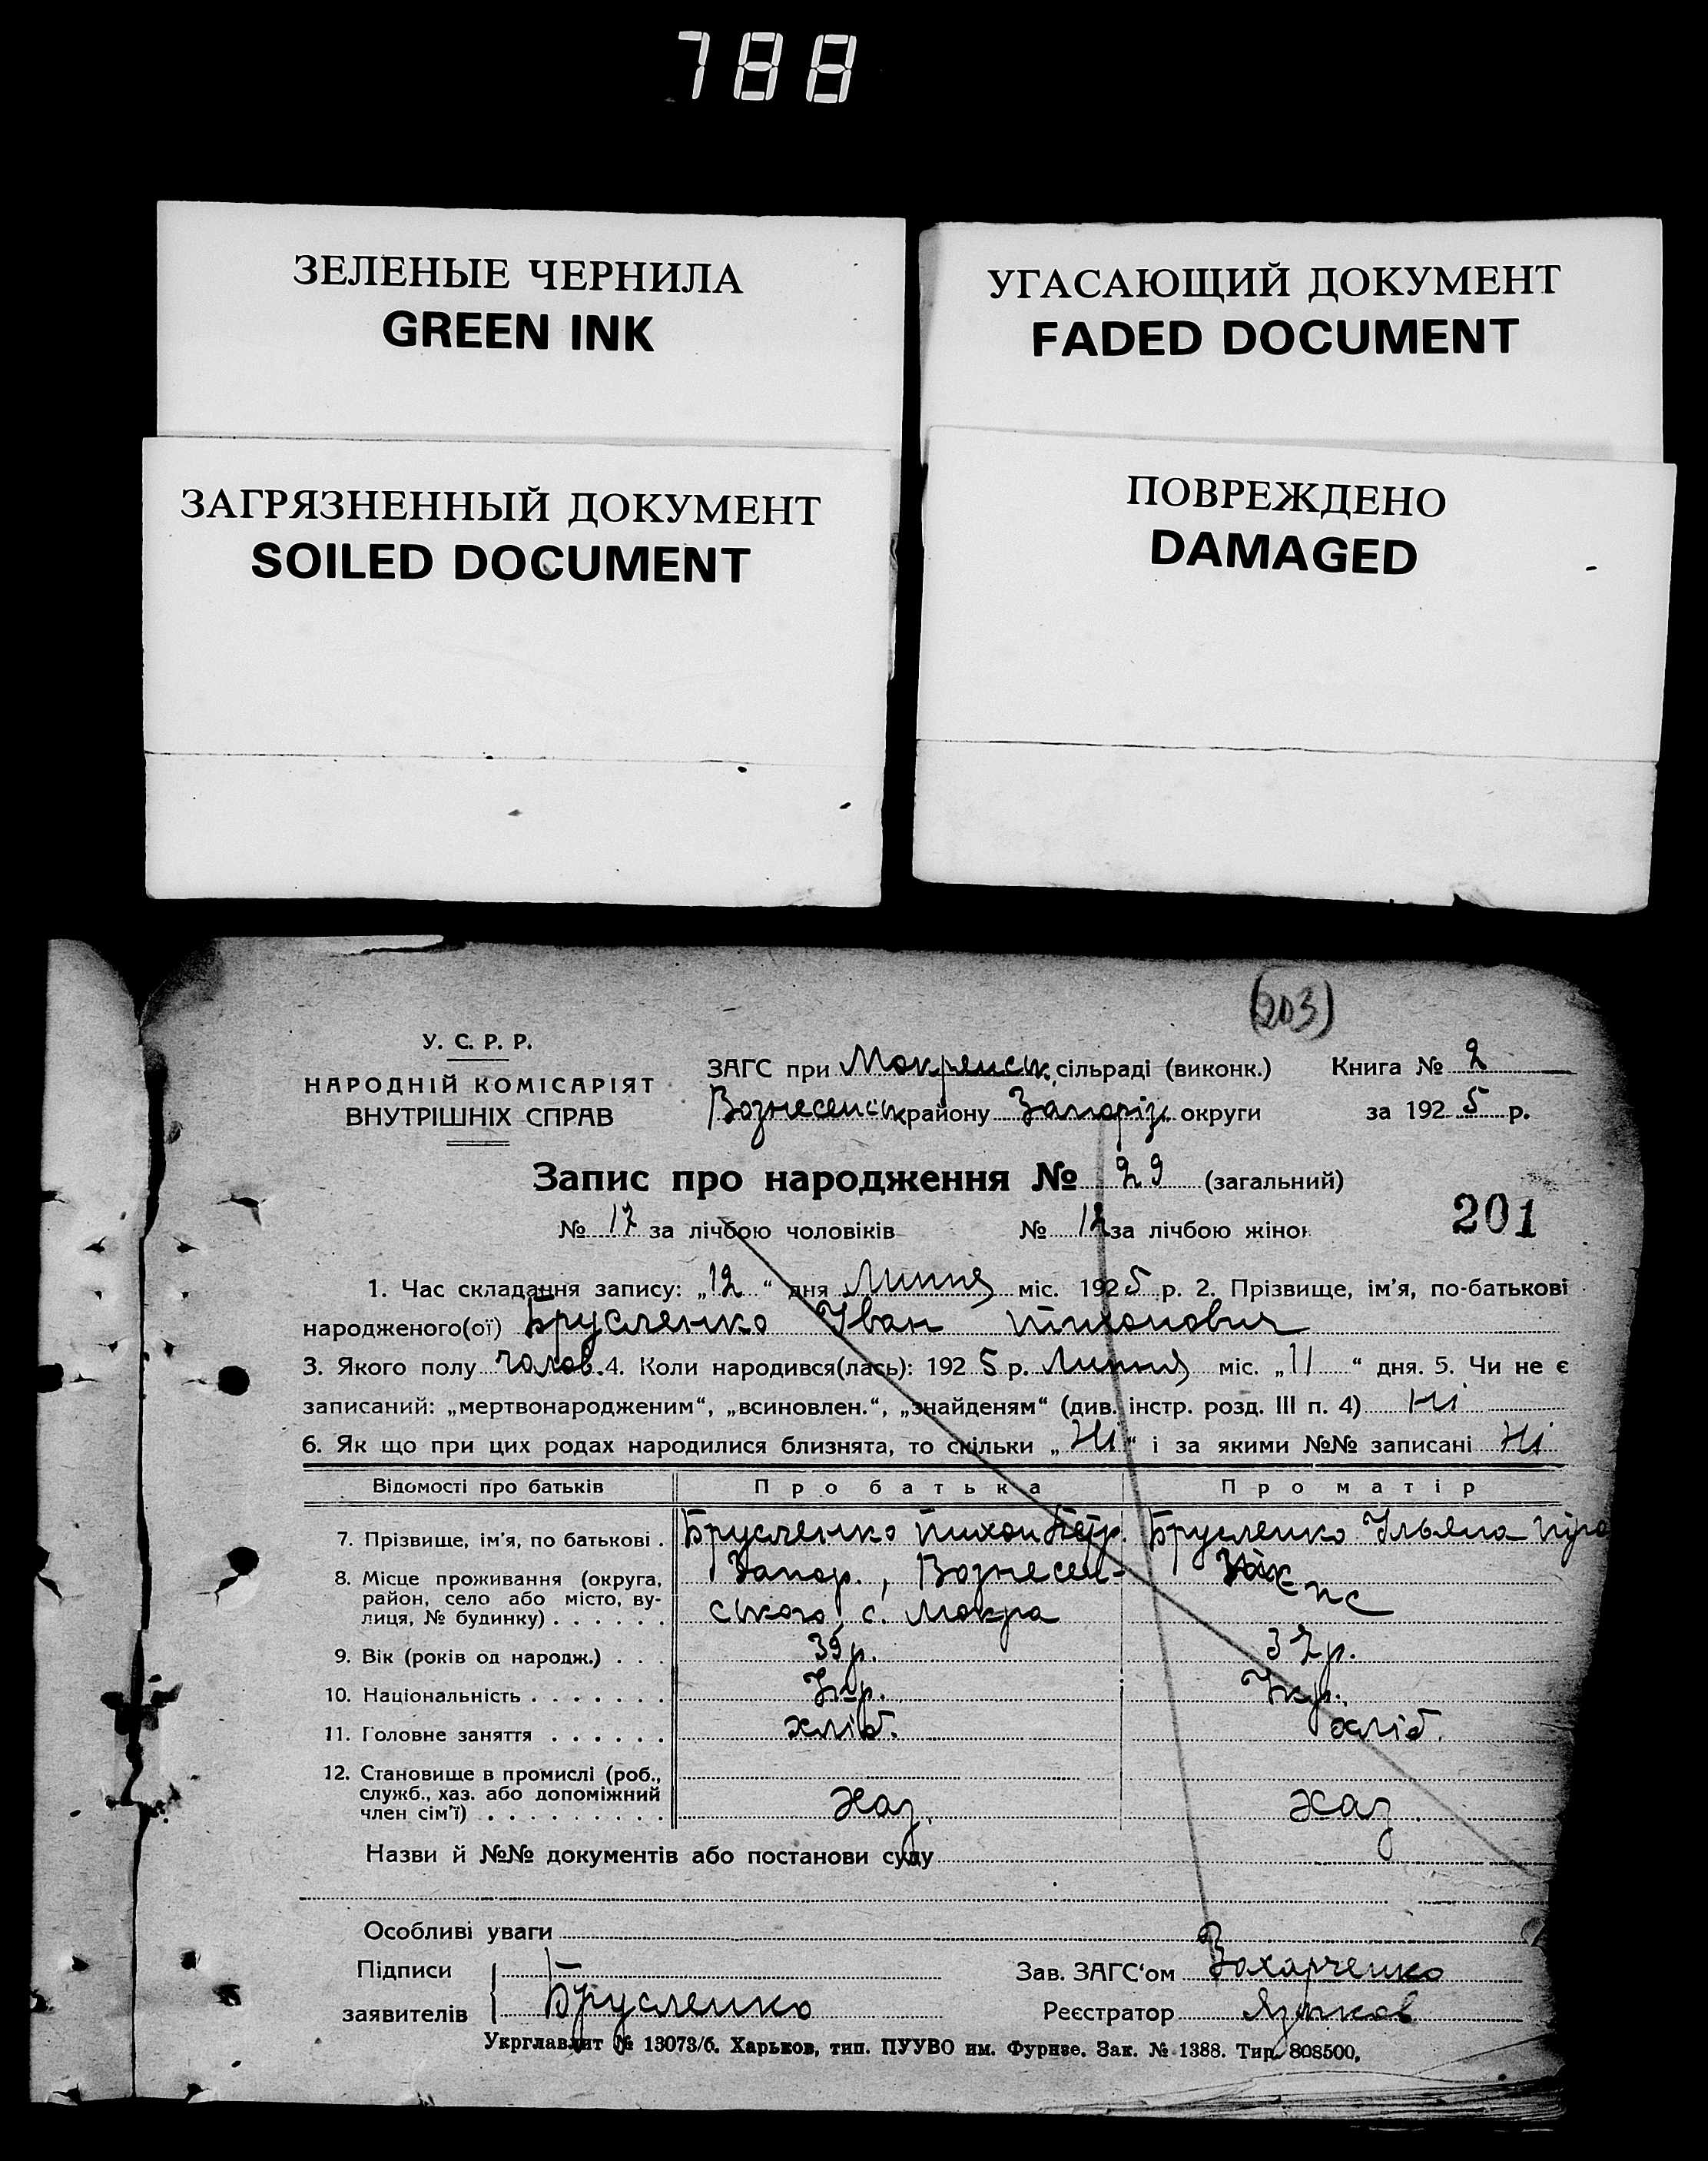 788
ЗЕЛЕНЫЕ ЧЕРНИЛА
GREEN INK
УГАСАЮЩИЙ ДОКУМЕНТ
FADED DOCUMENT
ЗАГРЯЗНЕННЫЙ ДОКУМЕНТ
SOILED DOCUMENT
ПОВРЕЖДЕНО
DAMAGED
(203)
У. С. Р. Р.
НАРОДНІЙ КОМІСАРІЯТ
ВНУТРІШНІХ СПРАВ
ЗАГС при Мокрянськ. сільраді (виконк.) Книга № 2
Вознесенськ району Запоріз. округи за 1925 р.
Запис про народження № 29 (загальний)
№ 17 за лічбою чоловіків № 12 за лічбою жінок
201
1. Час складання запису: „12“ дня Липня міс. 1925 р. 2. Прізвище, ім'я, по-батькові
народженого(ої) Брусленко Іван Тихонович
3. Якого полу чолов. 4. Коли народився(лась): 1925 р. Липня міс. „11“ дня. 5. Чи не є
записаний: „мертвонародженим“, „всиновлен.“, „знайденям“ (див. інстр. розд. III п. 4) Ні
6. Як що при цих родах народилися близнята, то скільки „Ні“ і за якими №№ записані Ні
Відомості про батьків Про батька Про матір
7. Прізвище, ім'я, по батькові . Брусленко Тихон Петр. Брусленко Ульяна
8. Місце проживання (округа, район, село або місто, вулиця, № будинку) . . . . . . Запор., Вознесенського, с. Мокра
9. Вік (років од народж.) . . . 39 р. 37 р.
10. Національність . . . . . . . Укр. Укр.
11. Головне заняття . . . . . . хліб. хліб.
12. Становище в промислі (роб., служб., хаз. або допоміжний член сім'ї) . . . . . . . . . хаз. хаз.
Назви й №№ документів або постанови суду
Особливі уваги
Підписи заявителів Брусленко
Зав. ЗАГС'ом Захарченко
Реєстратор
Укрглавліт № 13073/б. Харьков, тип. ПУУВО им. Фурнзе. Зак. № 1388. Тир. 808500.